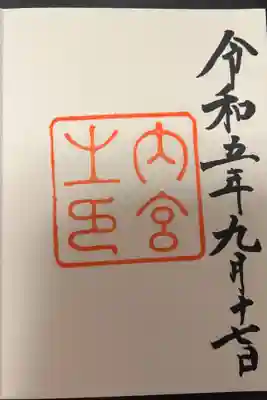 令和五年九月十七日
内宮
之印